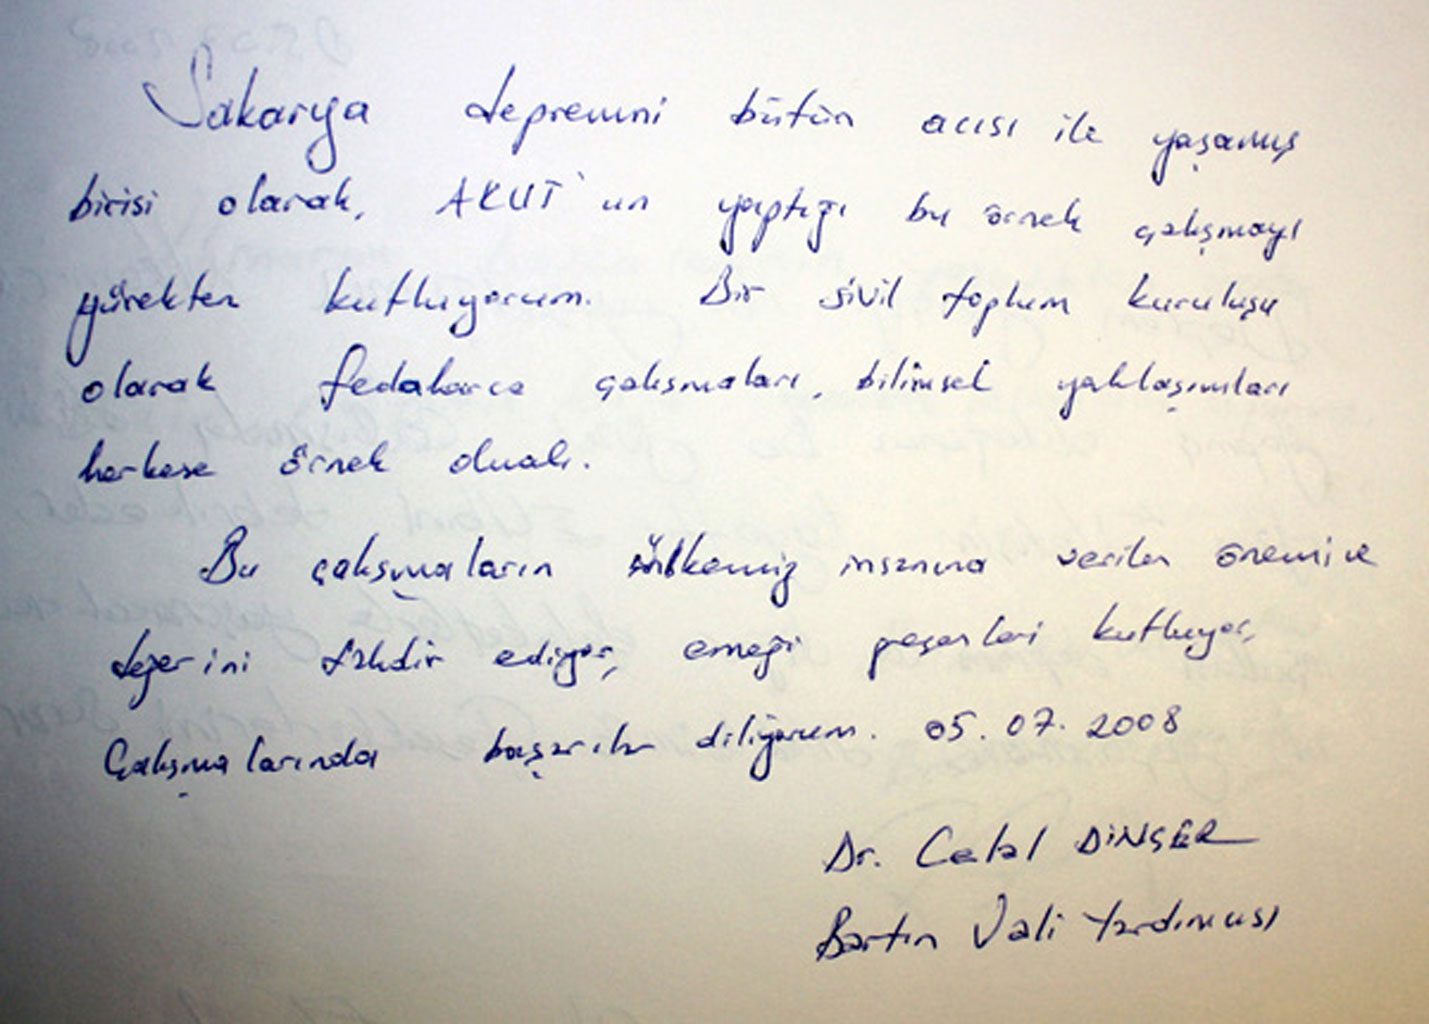 Sakarya depremini bütün acısı ile yaşamış
birisi olarak, AKUT'un yaptığı bu örnek çalışmayı
yürekten kutluyorum. Bir sivil toplum kuruluşu
olarak fedakarca çalışmaları, bilimsel yaklaşımları
herkese örnek olmalı.
Bu çalışmaların ülkemiz insanına verilen önemi ve
değerini takdir ediyor, emeği geçenleri kutluyor,
Çalışmalarında başarılar diliyorum. 05.07.2008
Dr. Celal DİNÇER
Bartın Vali Yardımcısı